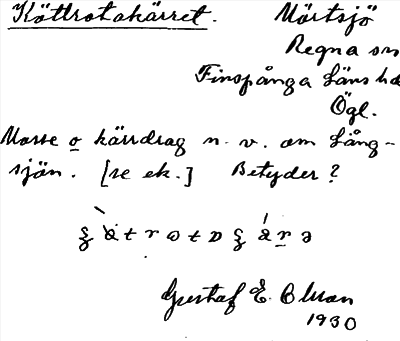 Kättrotakärret. Mörtsjö
Regna sn
Finspånga läns hd
Ögl.
Mosse o kärrdrag n. v. om Lång-
sjön. [se ek.] Betyder?
Gustaf E. Olson
1930